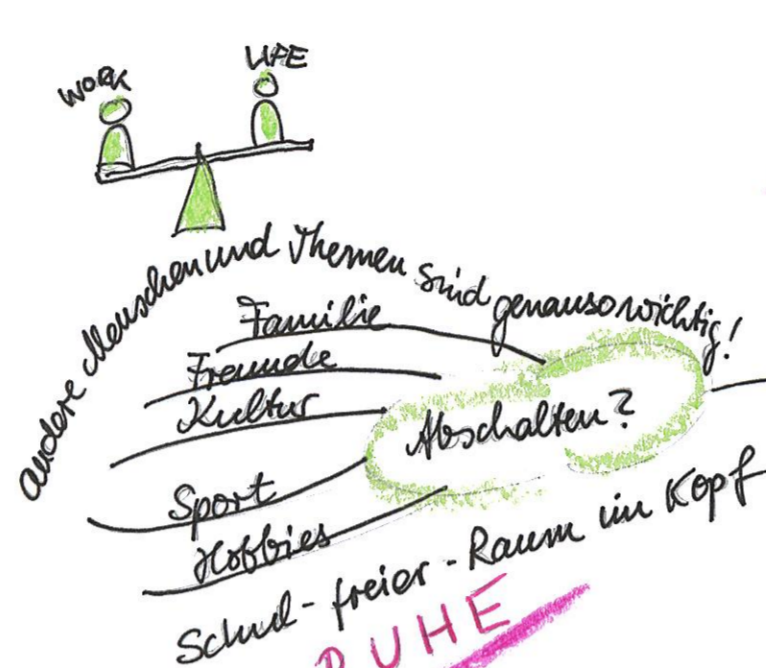 WORK
LIFE
andere Menschen und Themen sind genauso wichtig!
Familie
Freunde
Kultur
Abschalten?
Sport
Hobbies
Schul-freier-Raum im Kopf
RUHE